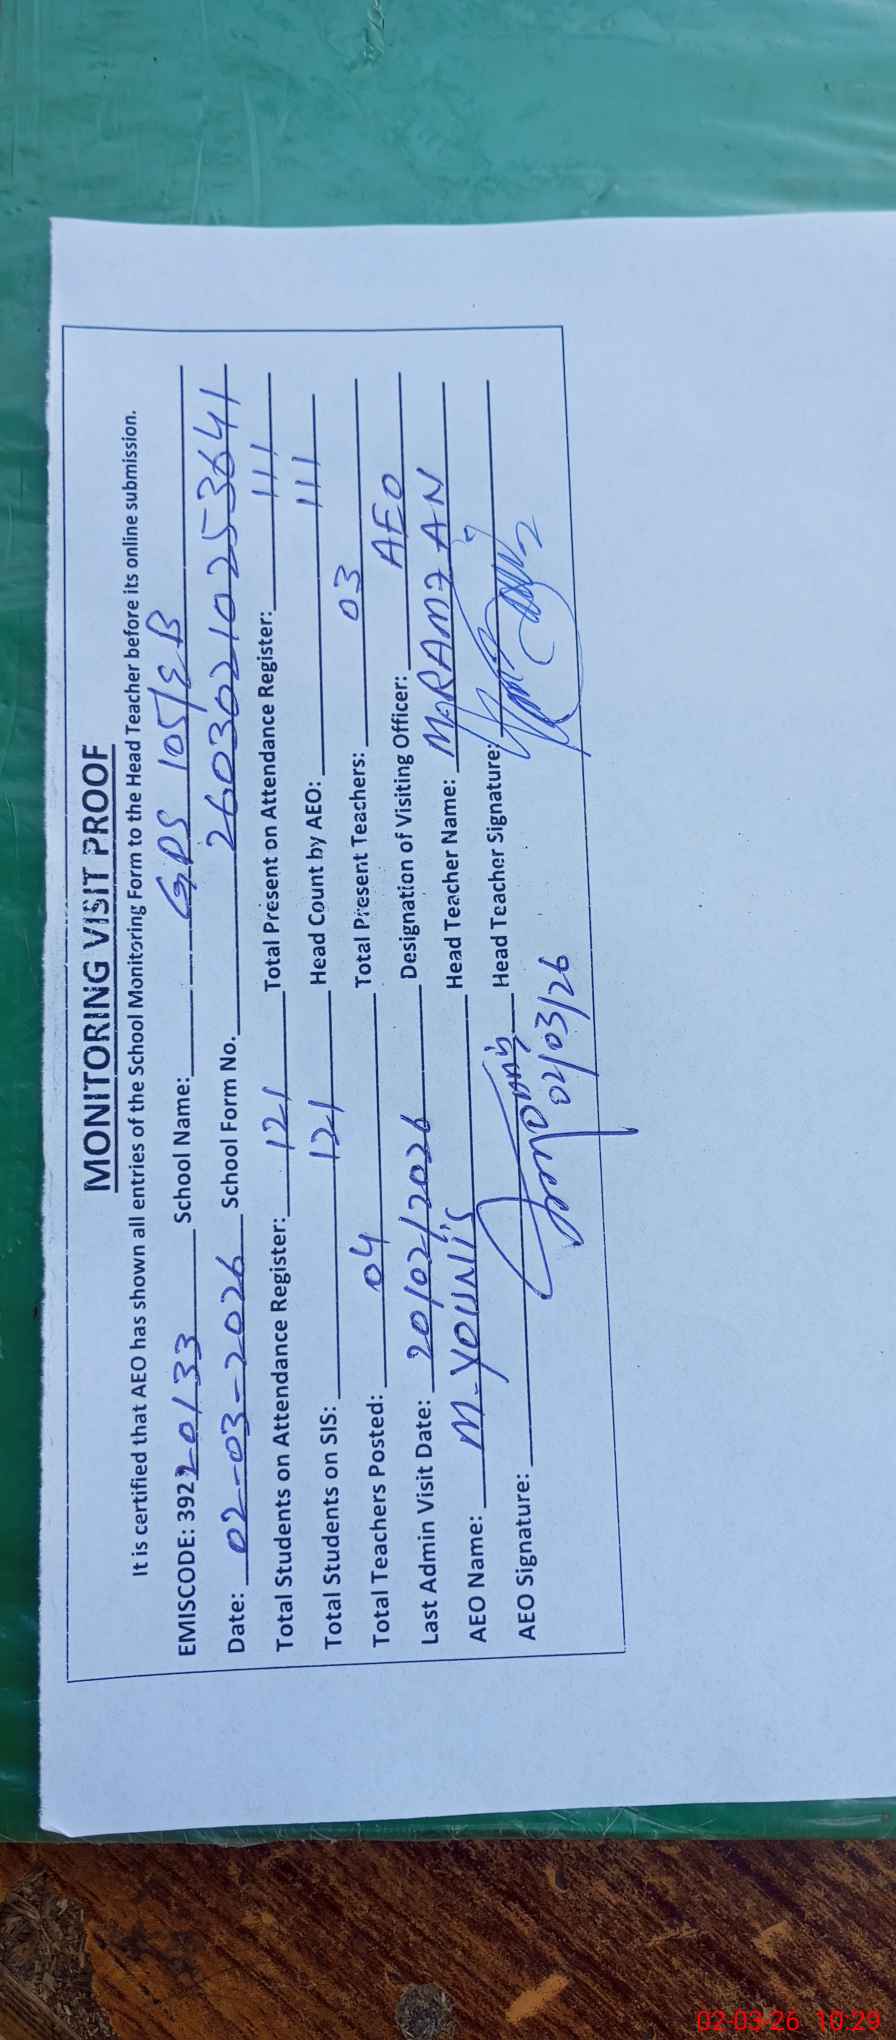 MONITORING VISIT PROOF
It is certified that AEO has shown all entries of the School Monitoring Form to the Head Teacher before its online submission.
EMISCODE: 39220133 School Name: GPS 105/EB
Date: 02-03-2026 School Form No. 26030210253641
Total Students on Attendance Register: 121 Total Present on Attendance Register: 111
Total Students on SIS: 121 Head Count by AEO: 111
Total Teachers Posted: 04 Total Present Teachers: 03
Last Admin Visit Date: 20/02/2026 Designation of Visiting Officer: AEO
AEO Name: M-YOUNIS Head Teacher Name: M.RAMZAN
AEO Signature: Head Teacher Signature:
02/03/26
02-03-26 10:29